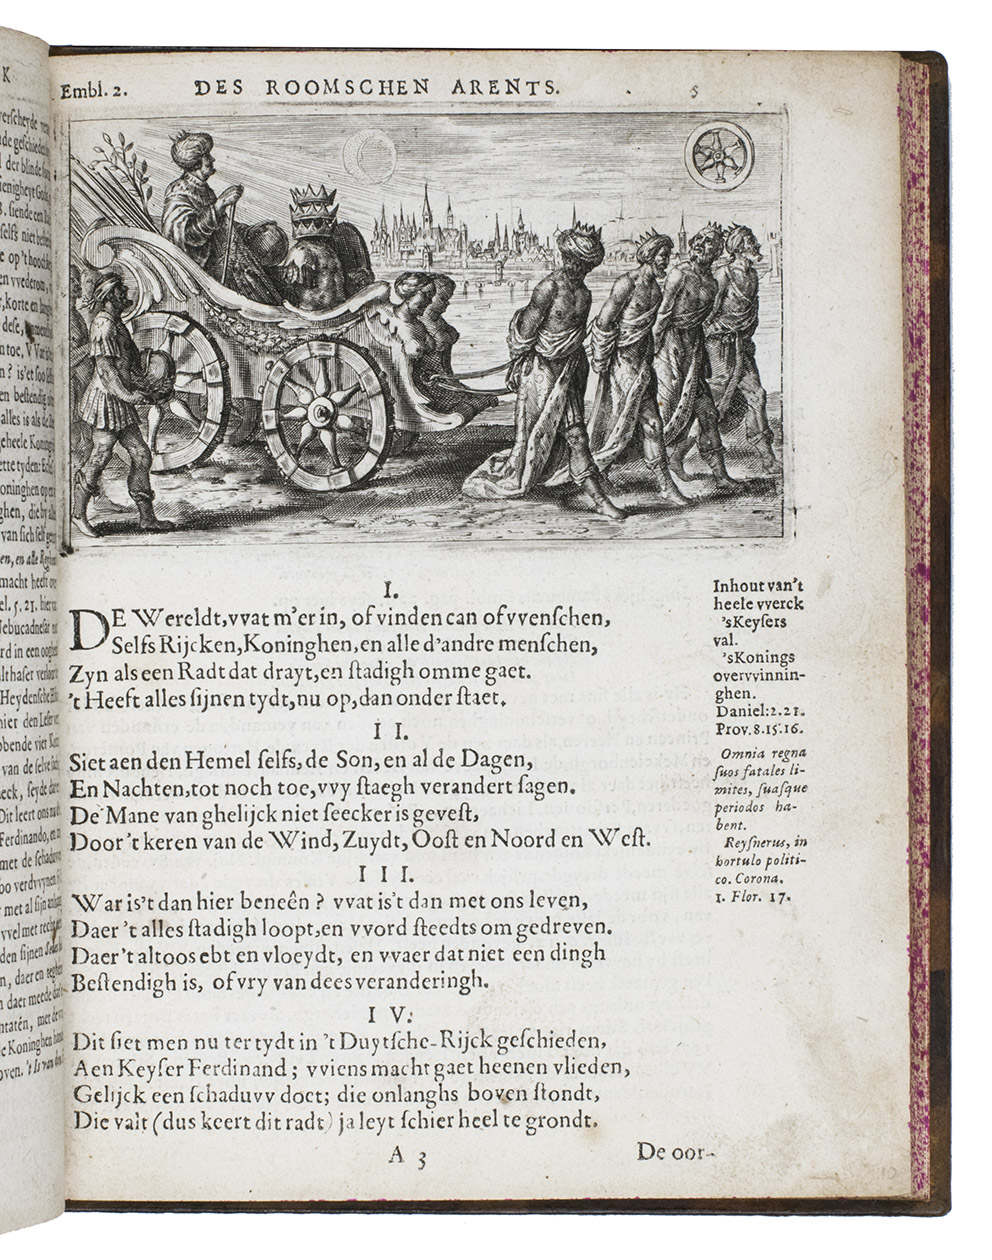 Embl. 2. DES ROOMSCHEN ARENTS. 5
I.
DE Wereldt, vvat m'er in, of vinden can of vvenſchen,
Selfs Rijcken, Koninghen, en alle d'andre menſchen,
Zyn als een Radt dat drayt, en ſtadigh omme gaet.
't Heeft alles ſijnen tydt, nu op, dan onder ſtaet.
II.
Siet aen den Hemel ſelfs, de Son, en al de Dagen,
En Nachten, tot noch toe, vvy ſtaegh verandert ſagen.
De Mane van ghelijck niet ſeecker is geveſt,
Door 't keren van de Wind, Zuydt, Ooſt en Noord en Weſt.
III.
War is't dan hier beneên? vvat is't dan met ons leven,
Daer 't alles ſtadigh loopt, en vvord ſteedts om gedreven.
Daer't altoos ebt en vloeydt, en vvaer dat niet een dingh
Beſtendigh is, of vry van dees veranderingh.
IV.
Dit ſiet men nu ter tydt in 't Duytſche-Rijck geſchieden,
Aen Keyſer Ferdinand; vviens macht gaet heenen vlieden,
Gelijck een ſchaduvv doet; die onlanghs boven ſtondt,
Die valt (dus keert dit radt) ja leyt ſchier heel te grondt.
A 3 De oor-
Inhout van't
heele vverck
'sKeyſers
val.
'sKonings
overvvinnin-
ghen.
Daniel: 2. 21.
Prov. 8. 15. 16.
Omnia regna
ſuos fatales li-
mites, ſuaſque
periodos ha-
bent.
Reyſnerus, in
hortulo politi-
co. Corona.
1. Flor. 17.